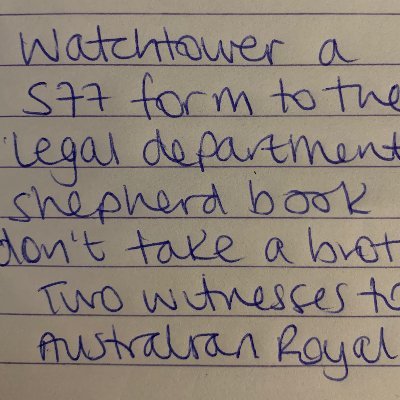 Watchtower a
S77 form to the
legal department
shepherd book
don't take a brot
Two witnesses to
Australian Royal